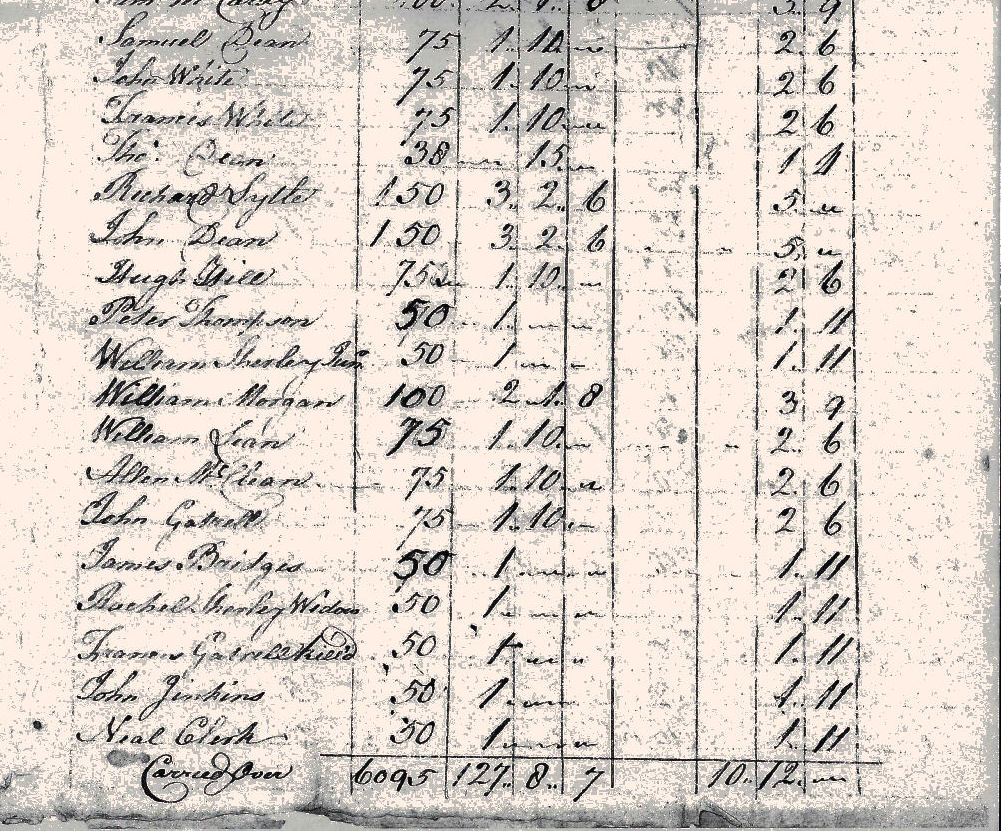 100 2 1 8 3 9
Samuel Dean 75 1 10 " 2 6
John White 75 1 10 " 2 6
Francis White 75 1 10 " 2 6
Tho.s Dean 38 " 15 " 1 4
Richard Sylte 150 3 2 6 5 "
John Dean 150 3 2 6 5 "
Hugh Hill 75 1 10 " 2 6
Peter Thompson 50 1 " " 1 11
William Sherley Jun 50 1 " " 1 11
William Morgan 100 2 1 8 3 9
William Lean 75 1 10 " 2 6
Allen McClean 75 1 10 " 2 6
John Gatrell 75 1 10 " 2 6
James Bridges 50 1 " " 1 11
Rachel Sherley Widow 50 1 " " 1 11
Francis Gatrell 50 1 " " 1 11
John Jenkins 50 1 " " 1 11
Neal Clerk 50 1 " " 1 11
Carried Over 6095 127 8 7 10 12 "